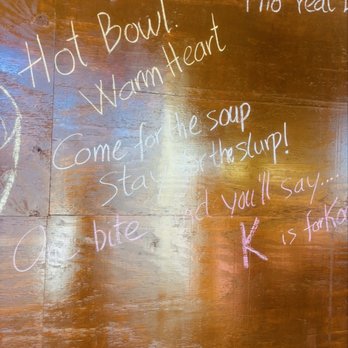 Hot Bowl.
Warm Heart
Come for the soup
Stay for the slurp!
One bite and you'll say....
K is for Kor